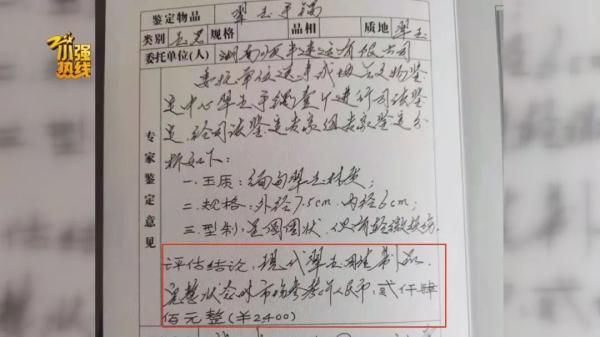 小强热线
鉴定物品 翠玉手镯
类别 玉器 规格 品相 质地 翠玉
委托单位(人) 湖南 速运有限公司
专家鉴定意见
委托单位送来 文物鉴
定中心翠玉手镯壹个进行司法鉴
定,经司法鉴定专家组专家鉴定分
析如下:
一.玉质:缅甸翠玉材质;
二.规格:外径7.5cm.内径6cm;
三.型制:呈圆圈状.但有轻微损伤.
评估结论:现代翠玉 制品.
完整状态的市场参考价人民币:贰仟肆
佰元整(¥2,400)